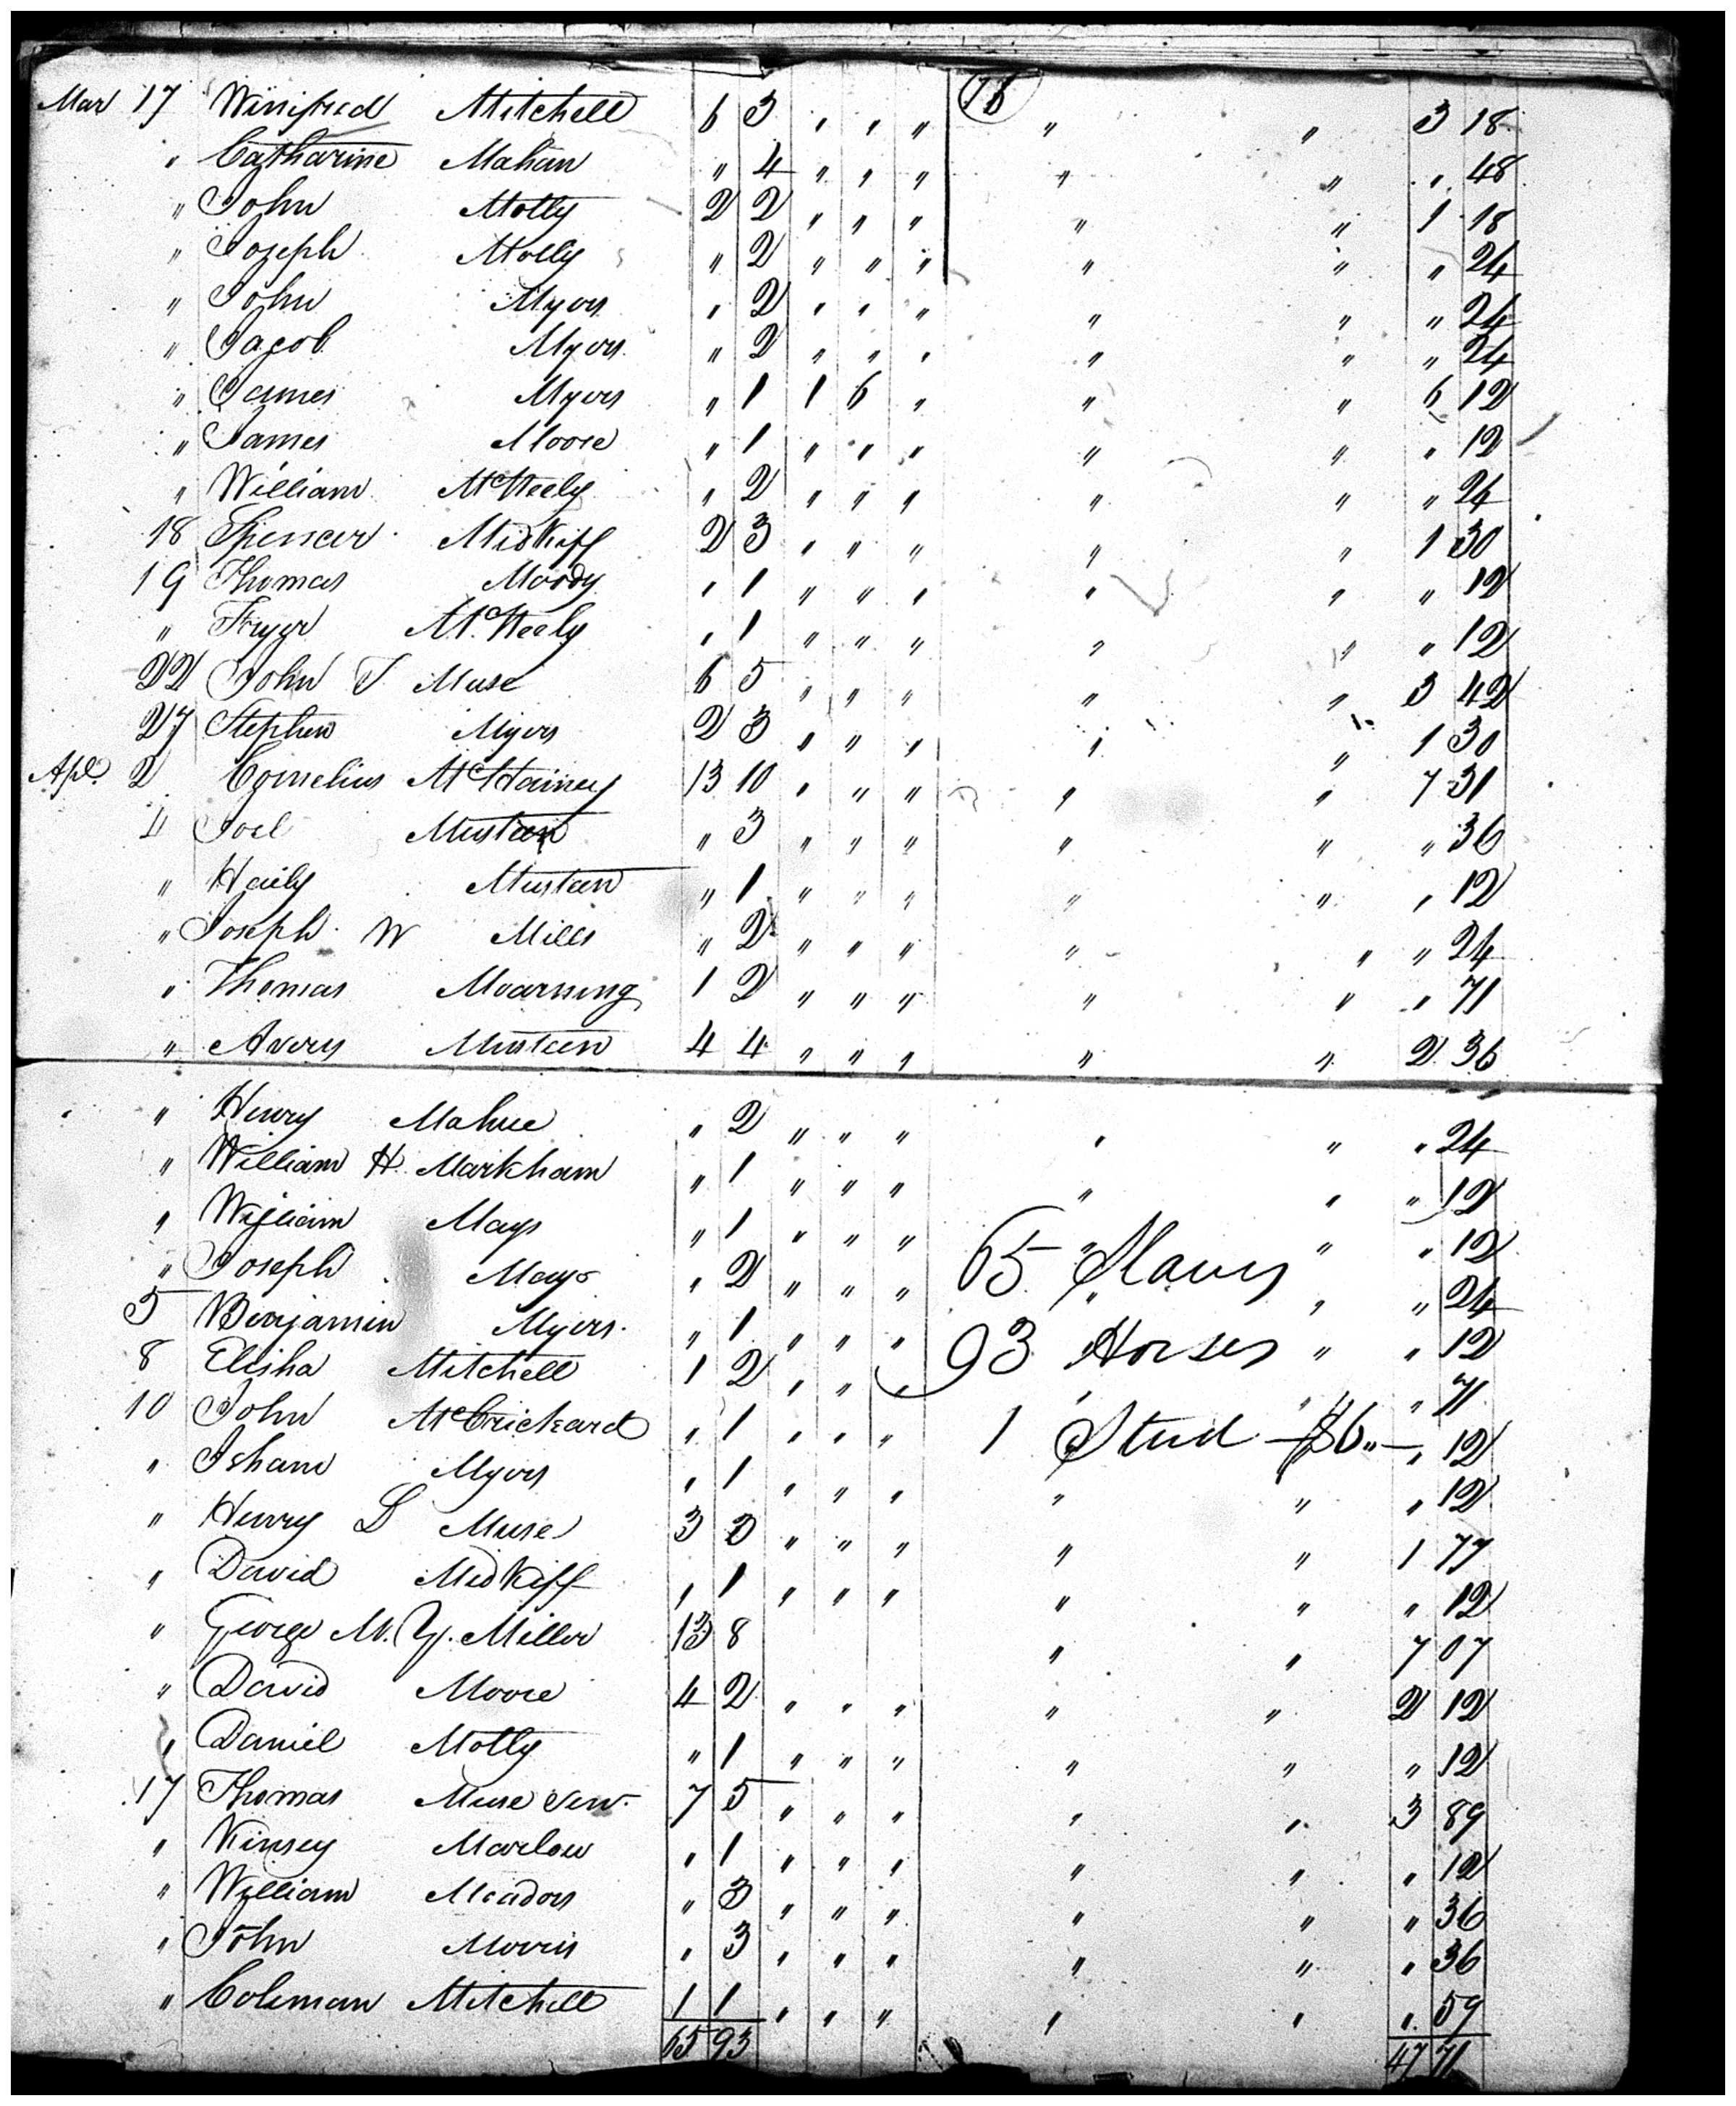 78
Mar 17 Winifred Mitchell 6 3 " " " " " 3 18
" Catharine Mahan " 4 " " " " " " 48
" John Motly 2 2 " " " " " 1 18
" Joseph Motly " 2 " " " " " " 24
" John Myers " 2 " " " " " " 24
" Jacob Myers " 2 " " " " " " 24
" James Myers " 1 1 6 " " " 6 12
" James Moore " 1 " " " " " " 12
" William McNeely " 2 " " " " " " 24
18 Spencer Midkiff 2 3 " " " " " 1 30
19 Thomas Moody " 1 " " " " " " 12
" Fryer McNeely " 1 " " " " " " 12
22 John T Muse 6 5 " " " " " 3 42
27 Stephen Myers 2 3 " " " " " 1 30
Apl. 2 Cornelius McHainey 13 10 " " " " " 7 31
4 Joel Musteen " 3 " " " " " " 36
" Haily Musteen " 1 " " " " " " 12
" Joseph W Mills " 2 " " " " " " 24
" Thomas Moarning 1 2 " " " " " " 71
" Avery Musteen 4 4 " " " " " 2 36
" Henry Mahue " 2 " " " " " " 24
" William H. Markham " 1 " " " " " " 12
" William Mays " 1 " " " " " " 12
" Joseph Mays " 2 " " " 65 Slaves " " 24
5 Benjamin Myers " 1 " " " 93 Horses " " 12
8 Elisha Mitchell 1 2 " " " " " " 71
10 John McCrickard " 1 " " " 1 Stud $6 " " 12
" Isham Myers " 1 " " " " " " 12
" Henry L Muse 3 3 " " " " " 1 77
" David Midkiff " 1 " " " " " " 12
" George M. Y. Miller 13 8 " " 7 07
" David Moore 4 2 " " " " " 2 12
" Daniel Motly " 1 " " " " " " 12
17 Thomas Muse Senr. 7 5 " " " " " 3 89
" Kinsey Marlow " 1 " " " " " " 12
" William Meadors " 3 " " " " " " 36
" John Morris " 3 " " " " " " 36
" Coleman Mitchell 1 1 " " " " " " 59
65 93 47 71